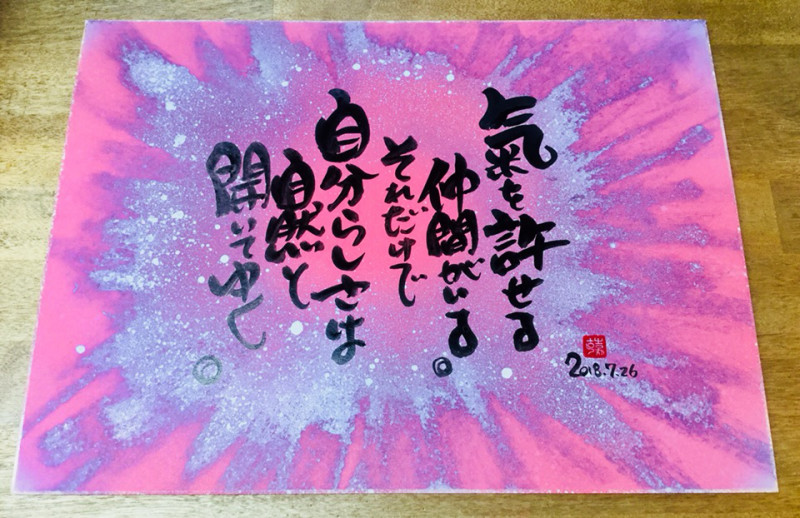 氣を許せる
仲間がいる。
それだけで
自分らしさは
自然と
開いてゆく。
2018.7.26